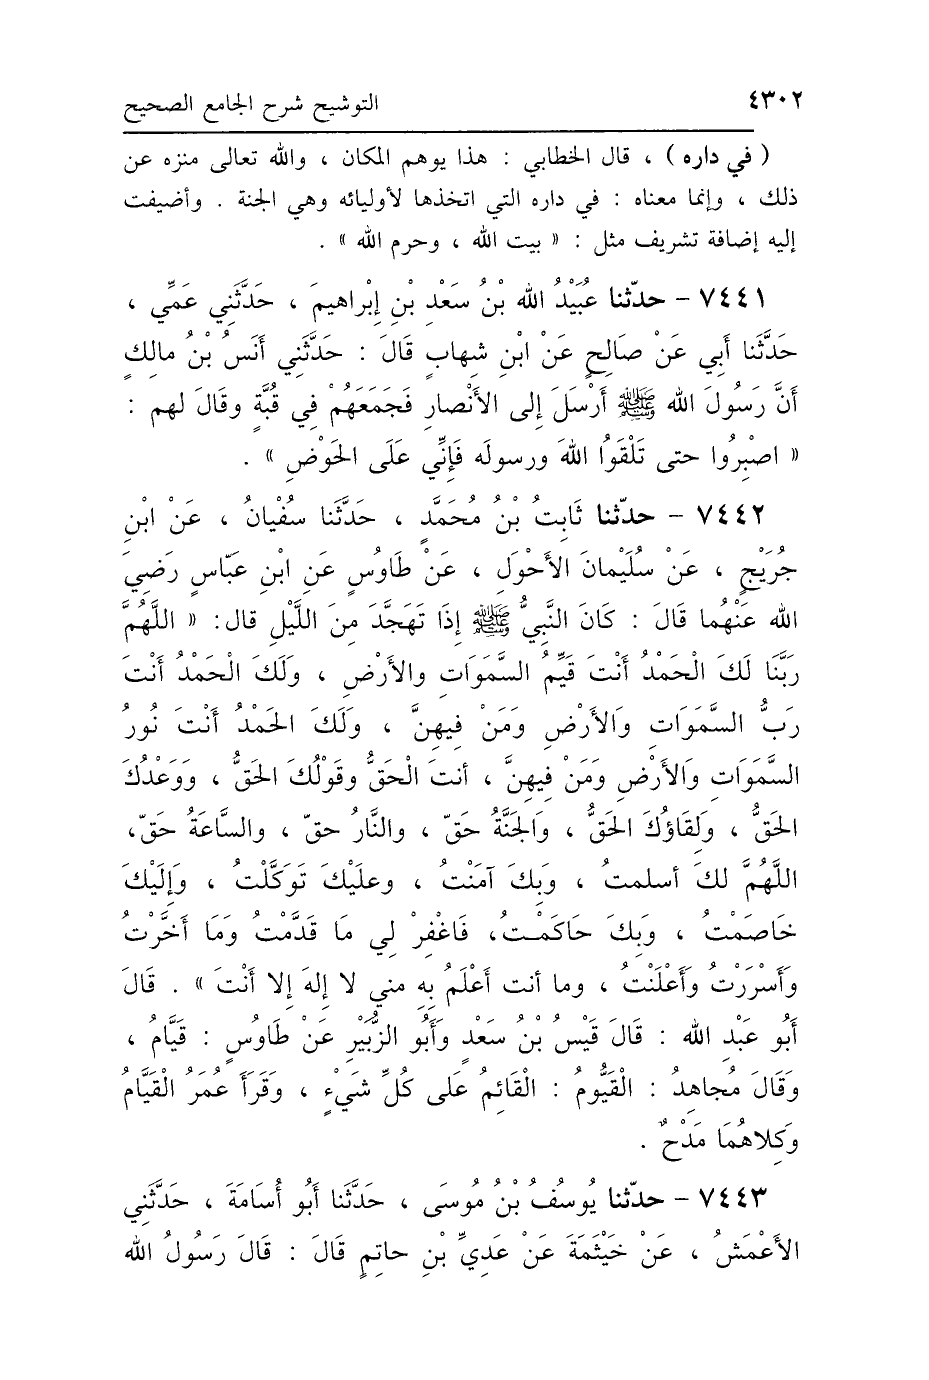 ٤٣٠٢ التوشيح شرح الجامع الصحيح
( في داره ) ، قال الخطابي : هذا يوهم المكان ، والله تعالى منزه عن
ذلك ، وإنما معناه : في داره التي اتخذها لأوليائه وهي الجنة . وأضيفت
إليه إضافة تشريف مثل : « بيت الله ، وحرم الله » .
٧٤٤١ – حدّثنا عُبَيْدُ الله بْنُ سَعْدِ بْنِ إِبْراهيمَ ، حَدَّثَنِي عَمِّي ،
حَدَّثَنَا أَبِي عَنْ صَالِحٍ عَنْ ابْنِ شِهابٍ قَالَ : حَدَّثَنِي أَنَسُ بْنُ مالِكٍ
أَنَّ رَسُولَ الله ﷺ أَرْسَلَ إلى الأَنْصارِ فَجَمَعَهُمْ فِي قُبَّةٍ وقَالَ لهم :
« اصْبِرُوا حتى تَلْقَوُا اللهَ ورسولَه فَإِنِّي عَلَى الحَوْضِ » .
٧٤٤٢ – حدّثنا ثَابِتُ بْنُ مُحَمَّدٍ ، حَدَّثَنَا سُفْيانُ ، عَنْ ابْنِ
جُرَيْجٍ ، عَنْ سُلَيْمانَ الأَحْوَلِ ، عَنْ طَاوُسٍ عَنِ ابْنِ عَبّاسٍ رَضِيَ
الله عَنْهُما قَالَ : كَانَ النَّبِيُّ ﷺ إذَا تَهَجَّدَ مِنَ اللَّيْلِ قال: « اللَّهُمَّ
رَبَّنَا لَكَ الْحَمْدُ أَنْتَ قَيِّمُ السَّمَوَاتِ والأَرْضِ ، ولَكَ الْحَمْدُ أَنْتَ
رَبُّ السَّمَوَاتِ وَالأَرْضِ وَمَنْ فِيهِنَّ ، وَلَكَ الحَمْدُ أَنْتَ نُورُ
السَّمَوَاتِ وَالأَرْضِ وَمَنْ فِيهِنَّ ، أنتَ الْحَقُّ وقَوْلُكَ الحَقُّ ، وَوَعْدُكَ
الحَقُّ ، ولِقَاؤُكَ الحَقُّ ، وَالجَنَّةُ حَقّ ، والنَّارُ حقّ ، والسَّاعَةُ حَقّ،
اللَّهُمَّ لكَ أسلمتُ ، وَبِكَ آمَنْتُ ، وعلَيْكَ تَوَكَّلْتُ ، وَإِلَيْكَ
خَاصَمْتُ ، وَبِكَ حَاكَمْتُ، فَاغْفِرْ لِي مَا قَدَّمْتُ وَمَا أَخَّرْتُ
وَأَسْرَرْتُ وَأَعْلَنْتُ ، وما أنت أَعْلَمُ بِهِ مني لا إلهَ إلا أَنْتَ » . قَالَ
أَبُو عَبْدِ الله : قَالَ قَيْسُ بْنُ سَعْدٍ وَأَبُو الزُّبَيْرِ عَنْ طَاوُسٍ : قَيَّامُ ،
وَقَالَ مُجاهِدُ : الْقَيُّومُ : الْقَائِمُ عَلى كُلِّ شَيْءٍ ، وَقَرَأَ عُمَرُ الْقَيَّامُ
وَكِلاهُمَا مَدْحٌ .
٧٤٤٣ – حدّثنا يُوسُفُ بْنُ مُوسَى ، حَدَّثَنَا أَبُو أُسَامَةَ ، حَدَّثَنِي
الأَعْمَشُ ، عَنْ خَيْثَمَةَ عَنْ عَدِيِّ بْنِ حاتِمٍ قَالَ : قَالَ رَسُولُ الله